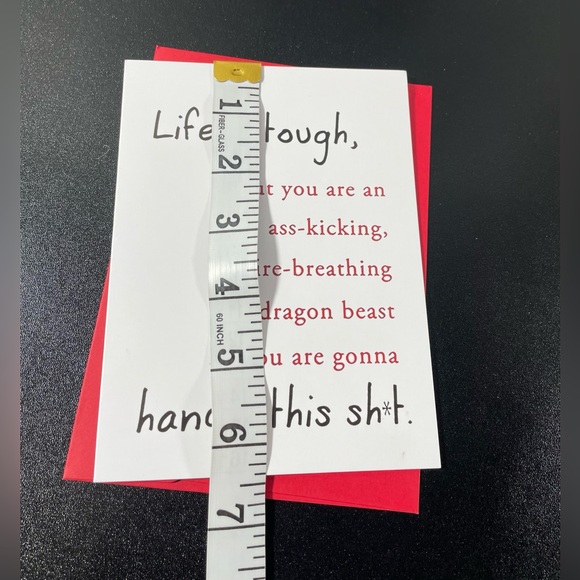 Life tough,
ut you are an
ass-kicking,
ire-breathing
dragon beast
ou are gonna
hand this sh*t.
1
FIBER-GLASS
2
3
4
60 INCH
5
6
7